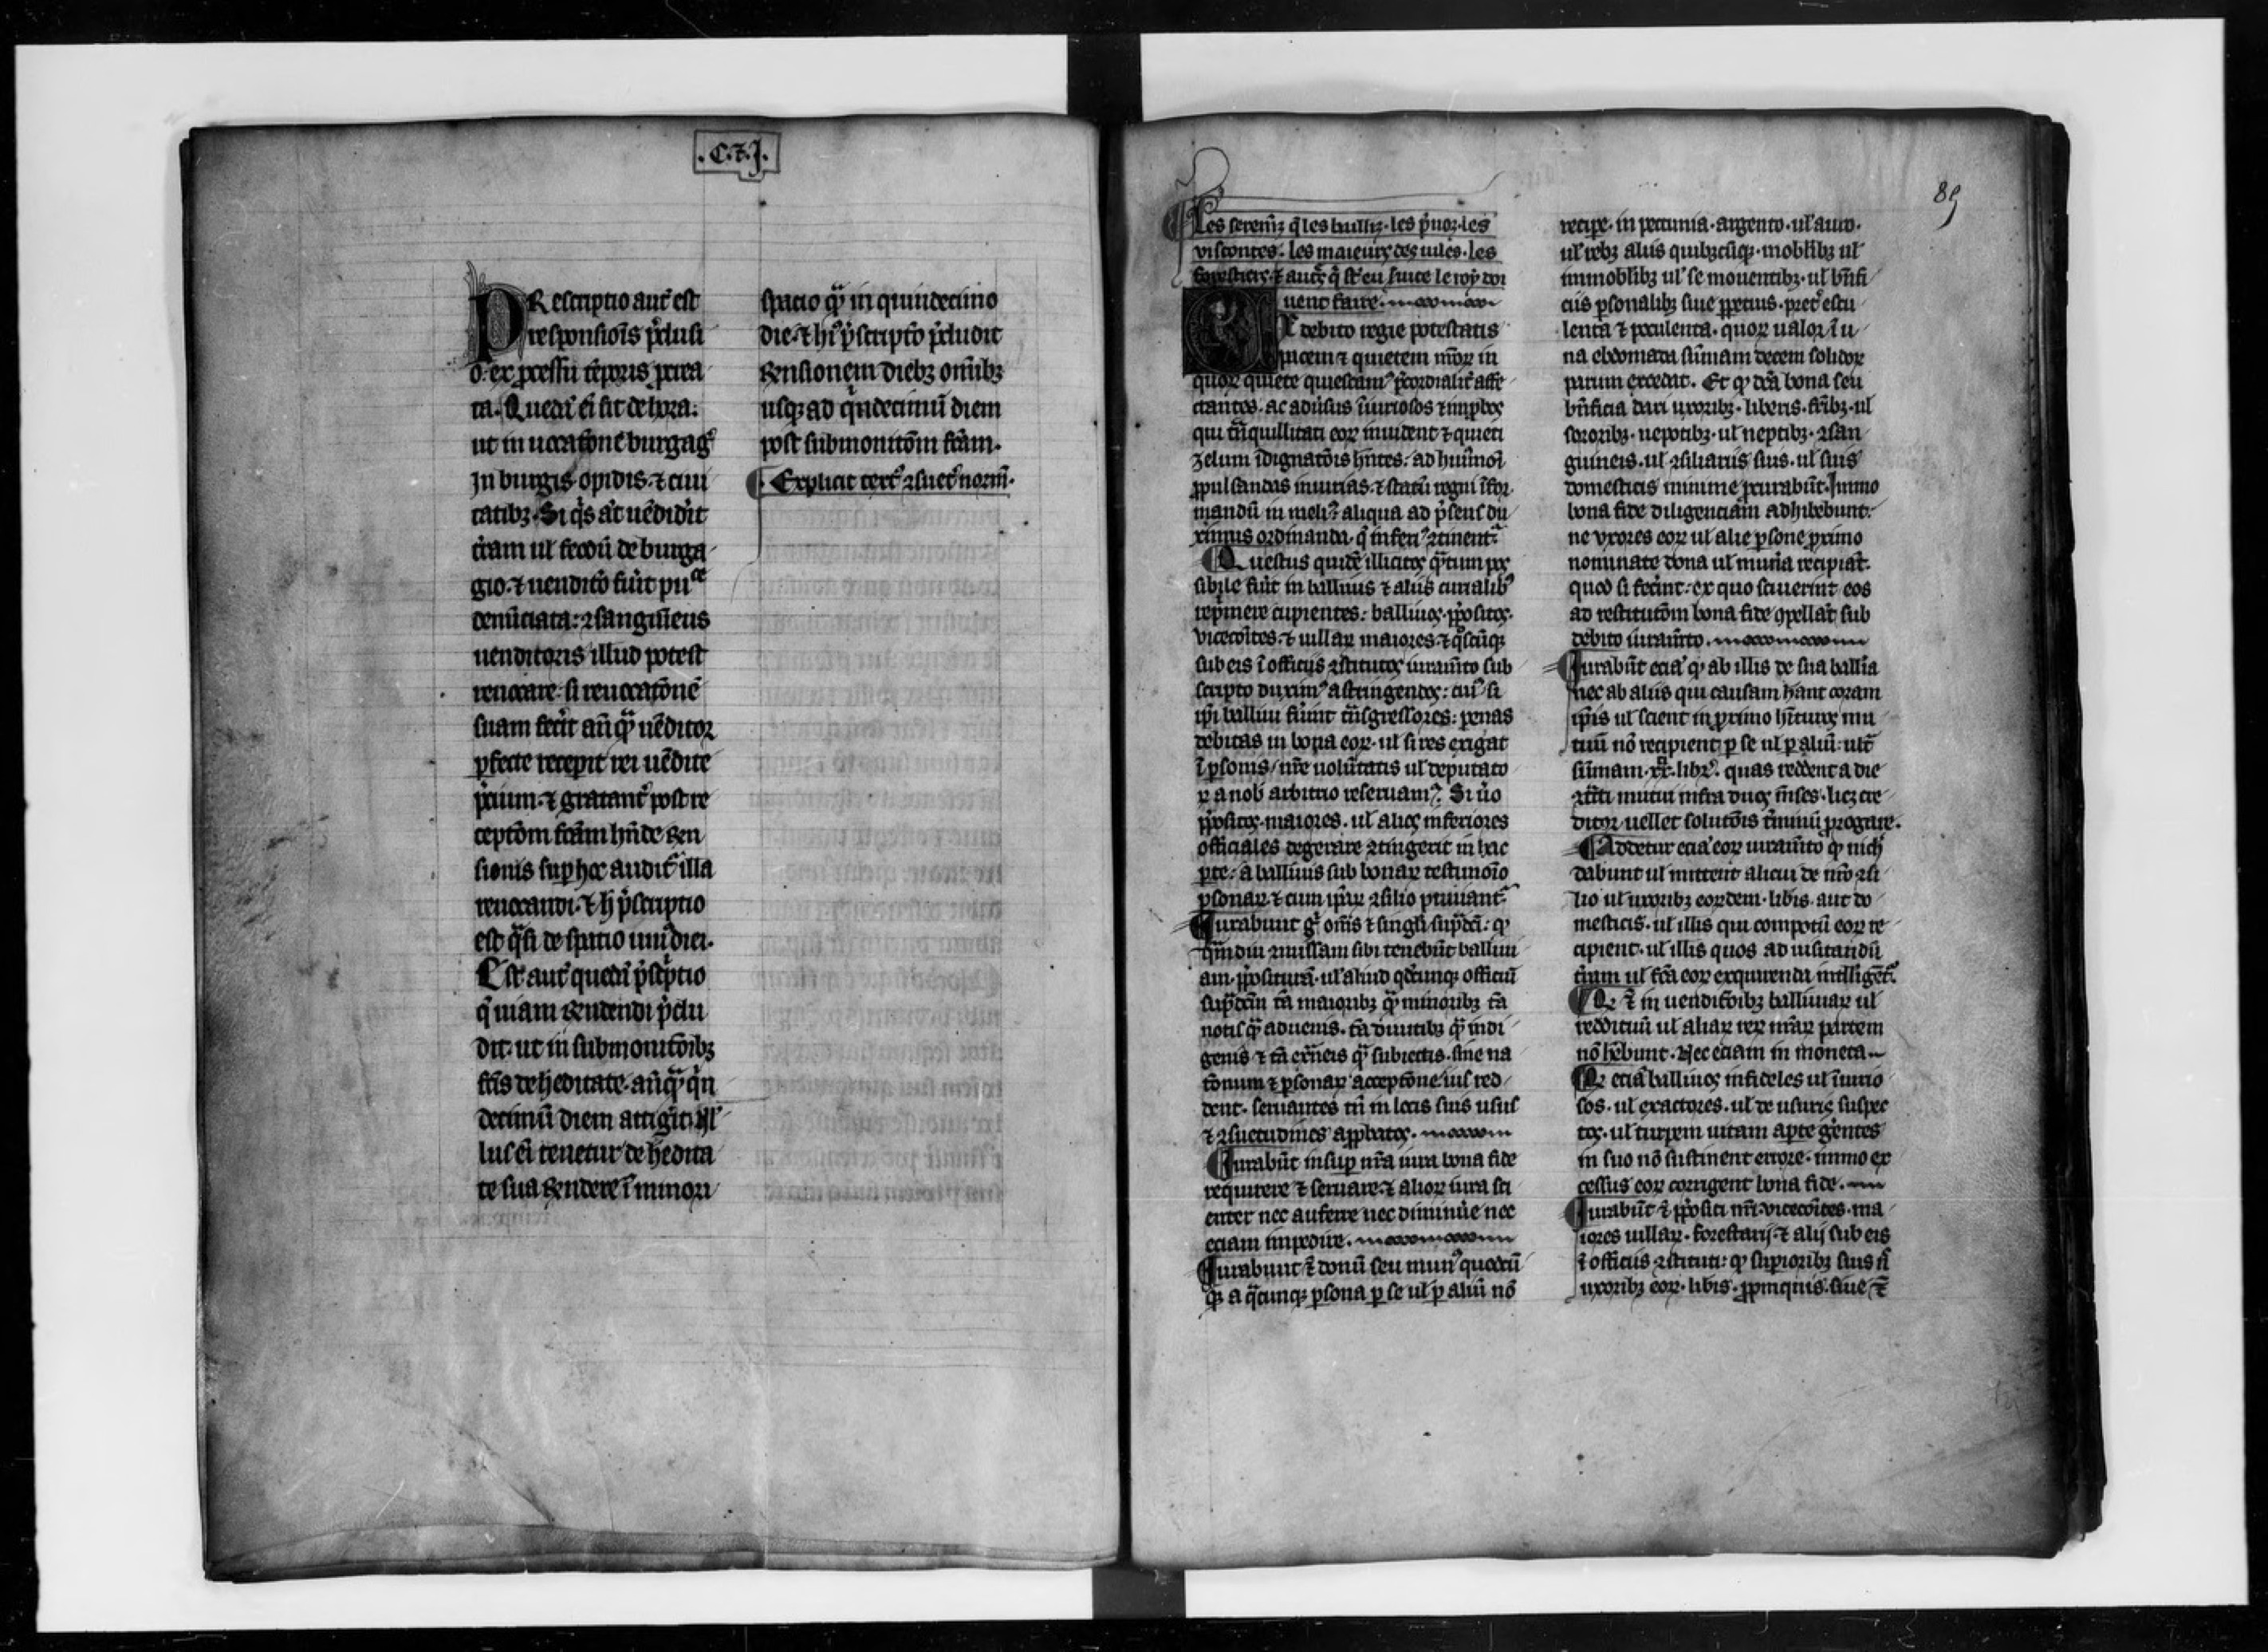 .C.⁊.J.
PRescriptio aut̄ est
responsiōis p̄clusi
o. ex ꝓcessu tēporis ꝓcrea
ta. Quedā ēi fit de hora.
ut in uocatōne burgagꝰ
Jn burgis opidis ⁊ ciui
tatibꝫ. Si q̄s aūt uēdidit̄
terram ul̄ feodū de burga
gio. ⁊ uenditō fūit puᶜᵉ
denūciata: ɔsanguīeus
uenditoris illud potest
reuocare. si reuocatōnē
suam fecīt an̄q̄ uēditor
ꝑfecte recepit rei uēdite
p̄cium. ⁊ gratant̄ post re
ceptōm fc̄am hn̄de Gen
sionis suꝑ hoc audit̄ illa
reuocandi. ⁊ h̄ p̄scriptio
est q̄si de spatio uniꝰ diei.
Est aut̄ quedā p̄scͥptio
q̄ uiam Gendendi p̄clu
dit. ut in submonitōibꝫ
fc̄is de hēditate. an̄q̄ q̄n
decimū diem attigīt. Nl̄
lus ēi tenetur de hēdita
te sua Gendere ī minori
spacio q̄ in quindecimo
die. ⁊ hꝰ p̄scripto p̄cludit
Gensionem diebꝫ omībꝫ
usqꝫ ad q̄ndecimū diem
post submonitōm fc̄am.
Explicit text̄ ɔsuet̄ norm̄.
85
Les seremꝫ q̄ les bailliz. les p̄uoz. les
viscontes. les maieurs des uiles. les
forestiers. ⁊ autꝭ q̄ st̄ eu seuice le roy doi
uent faire.
EX debito regie potestatis
pacem ⁊ quietem nr̄oꝝ in
quoꝝ quiete quiescamꝰ p̄cordialit̄ affe
ctantes. ac adūsus īiuriosos ⁊ imꝓbos
qui tn̄quillitati eoꝝ inuident ⁊ quieti
zelum īdignatōis hn̄tes. ad huiꝰmōi
ꝓpulsandas iniurias. ⁊ statū regni īfor
mandū in meliꝰ aliqua ad p̄sens du
ximus ordinanda. q̄ inferiꝰ ɔtinent̄
Questus quidē illicitos q̄tum pos
sibile fūit in balliuis ⁊ aliis curialibꝰ
rep̄mere cupientes: balliuos. p̄positos.
vicecōites. ⁊ uillaꝝ maiores. ⁊ q̄scūqꝫ
sub eis ī officijs ɔstitutos iuram̄to sub
scripto duximꝰ astringendos: cuiꝰ si
ip̄i balliui fūint tn̄sgressores: penas
debitas in bona eoꝝ. ul̄ si res exigat
ī ꝑsonis / nr̄e uolūtatis ul̄ deputato
ꝝ a nob̄ arbitrio reseruamꝰ. Si ūo
p̄positos. maiores. ul̄ alios inferiores
officiales degerare ɔtingerit in hac
ꝑte: a balliuis sub bonaꝝ testimoīo
ꝑsonaꝝ. ⁊ cum ip̄aꝝ ɔsilio puniant̄.
Jurabunt gͦ om̄s ⁊ singl̄i sup̄dc̄i: qꝫ
q̄mdiu ɔmissam sibi tenebūt balliui
am. p̄positurā. ul̄ aliud qd̄cunqꝫ officiū
sup̄dc̄m tā maioribꝫ q̄ minoribꝫ tā
notis q̄ aduenis. tā diuitibꝫ q̄ indi
genis ⁊ tā exn̄eis q̄ subiectis. sine na
tōnum ⁊ ꝑsonaꝝ acceptōne ius red
dent. seruantes tn̄ in locis suis usus
⁊ ɔsuetudines apꝓbatos.
Jurabūt insuꝑ nr̄a iura bona fide
requirere ⁊ seruare. ⁊ alioꝝ iura sci
enter nec auferre nec diminūe nec
eciam impedire.
Jurabunt ⁊̄ donū seu munꝰ quodcū
qꝫ a q̄cunqꝫ ꝑsona ꝑ se ul̄ ꝑ aliū nō
recipe. in pecunia. argento. ul̄ auro.
ul̄ rebꝫ aliis quibꝫcūqꝫ. mobl̄ibꝫ ul̄
immobl̄ibꝫ ul̄ se mouentibꝫ. ul̄ bn̄fi
ciis ꝑsonalibꝫ siue ꝑpetuis. pret̄ escu
lenta ⁊ poculenta. quoꝝ ualor ī u
na ebdomada sūmam decem solidoꝝ
parum excedat. Et qꝫ dc̄a bona seu
bn̄ficia dari uxoribꝫ. liberis. fr̄ibꝫ. ul̄
sororibꝫ. nepotibꝫ. ul̄ neptibꝫ. ɔsan
guineis. ul̄ ɔsiliariis suis. ul̄ suis
domesticis minime ꝓcurabūt. Jmmo
bona fide diligenciam adhibebunt:
ne vxores eoꝝ ul̄ alie ꝑsone ꝓximo
nominate dona ul̄ mun̄a recipiāt.
quod si fecīnt: ex quo sciuerint eos
ad restitutōm bona fide ɔpellāt sub
debito iuram̄to.
Jurabūt eciā qꝫ ab illis de sua ballīa
nec ab aliis qui causam hān̄t coram
ip̄is ul̄ scient in ꝓximo hīturos mu
tuū nō recipient ꝑ se ul̄ ꝑ aliū: ult̄
sūmam .xx. libꝝ. quas reddent a die
ɔtc̄ti mutui infra duos mēses. lic̄ꝫ cre
ditor uellet solutōis t̄minū ꝓrogare.
Addetur eciā eoꝝ iuram̄to qꝫ nich̄
dabunt ul̄ mittent alicui de nr̄o ɔsi
lio ul̄ uxoribꝫ eoꝝdem. lib̄is. aut do
mesticis. ul̄ illis qui compotū eoꝝ re
cipient. ul̄ illis quos ad uisitandū
t̄ram ul̄ fc̄a eoꝝ exquirenda intlligēt̄.
Qꝫ ⁊̄ in uenditōibꝫ balliuiaꝝ ul̄
reddituū ul̄ aliaꝝ reꝝ nr̄aꝝ partem
nō hēbunt. Nec eciam in moneta.
Qꝫ eciā balliuos infideles ul̄ īiurio
sos. ul̄ exactores. ul̄ de usuris suspec
tos. ul̄ turpem uitam aꝑte gentes
in suo nō sustinent errore. immo ex
cessus eoꝝ corrigent bona fide.
Jurabūt ⁊̄ p̄positi nr̄i. vicecōites. ma
iores uillaꝝ. forestarij. ⁊ alij sub eis
ī officiis ɔstituti: qꝫ suꝑioribꝫ suis n̄
uxoribꝫ eoꝝ. lib̄is. ꝓpinquis. siue ⁊̄